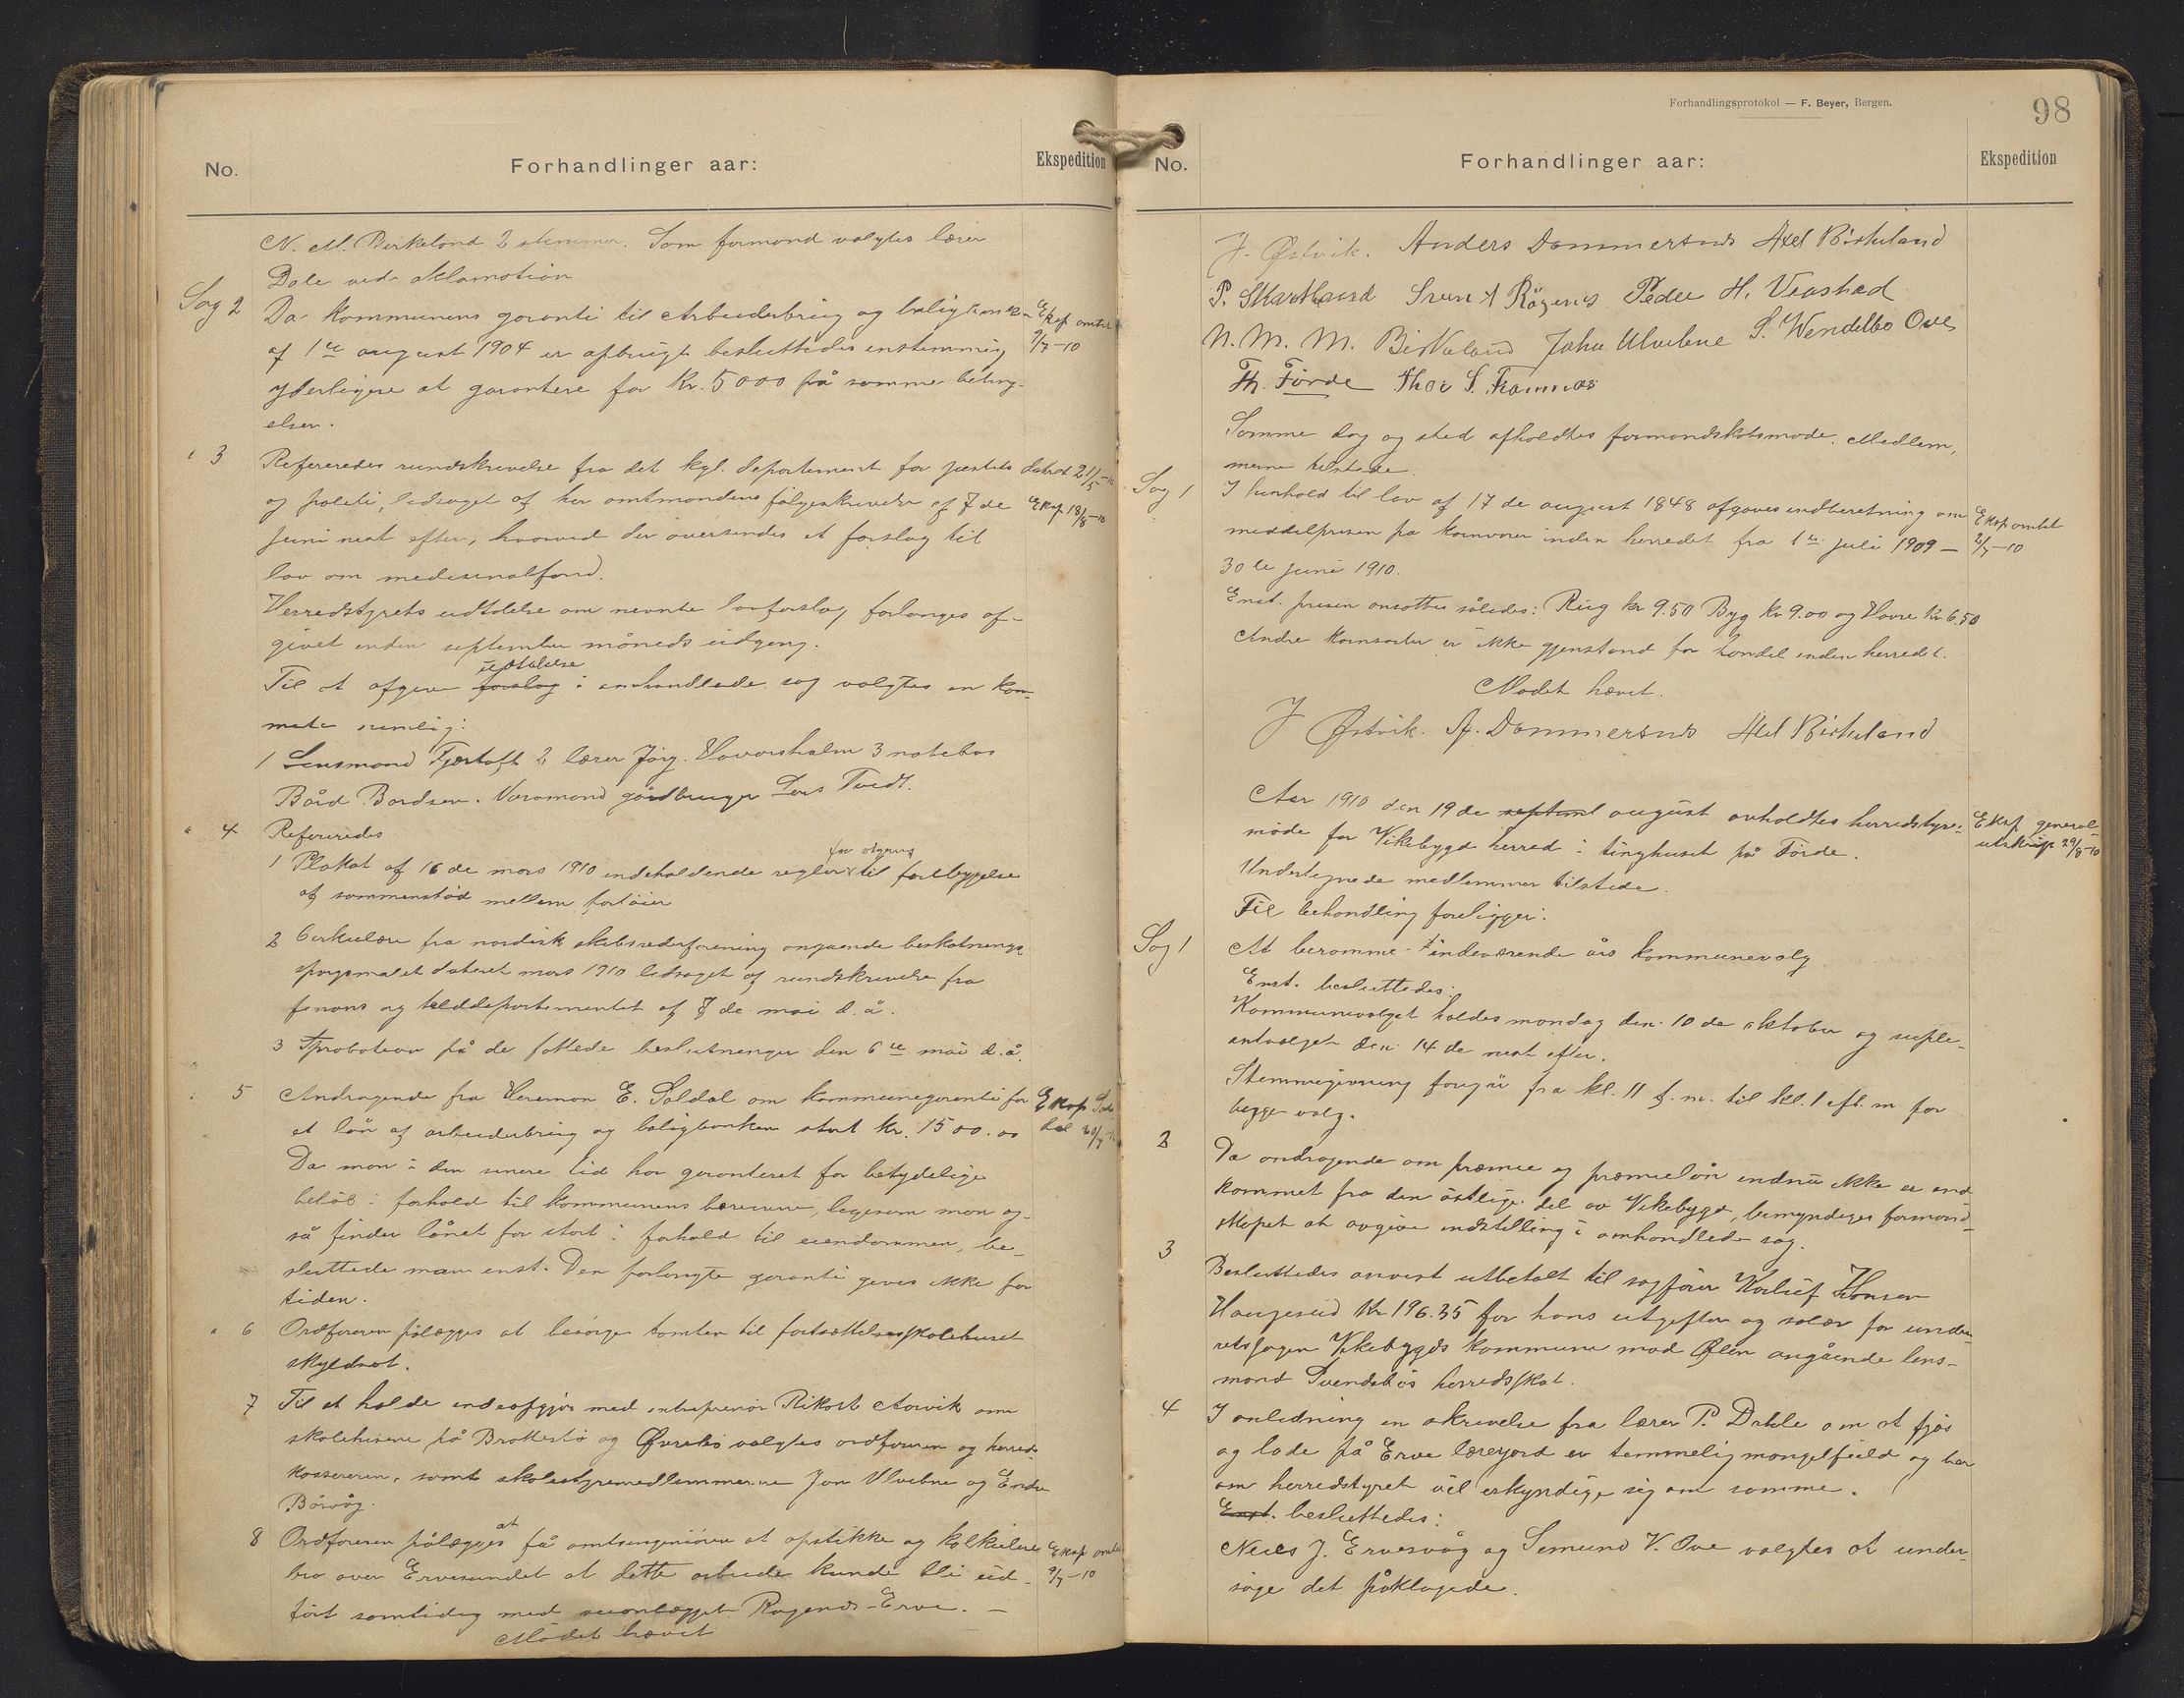 No.
Forhandlinger aar:
Ekspedition
N. M. Birkeland 2 stemmer. Som formand valgtes lærer
Dale ved aklamation
Sag 2
Da kommunens garanti til Arbeiderbrug og boligbanken Eksp amtet
af 1ste august 1904 er opbrugt besluttedes enstemmig 9/7-10
yderligere at garantere for kr. 5000 på samme beting-
elser.
" 3
Refereredes rundskrivelse fra det kgl. departement for justits datert 21/5-10
og politi, ledsaget af hr amtmandens følgeskrivelse af 7de Eksp 18/8-10
juni næst efter, hvorved der oversendes et forslag til
lov om medisinalfond.
Herredstyrets udtalelse om nevnte lovforslag forlanges af-
givet inden september måneds udgang.
uttalelse
Til at afgive forslag i omhandlede sag valgtes en kom-
mite nemlig:
1 Lensmand Fjærtoft 2 lærer Jørg. Havorsholm 3 notebas
Bård Bårdsen. Varamand gårdbruger Lars Tvedt.
" 4
Refereredes
for otgang
1 Plakat af 16de mars 1910 indeholdende regler til forebyggelse
af sammenstød mellem fartøier
2 Cirkulære fra nordisk skibsrederforening angaaende beskatnings
spørgsmalet dateret mars 1910 ledsaget af rundskrivelse fra
finans og tolddepartementet af 7de mai d.å.
3 Aprobation på de fattede beslutninger den 6te mai d.å.
" 5
Andragende fra Herman E. Saldal om kommunegaranti for Eksp Sal
et lån af arbeiderbrug og boligbanken stort kr. 1500.00 dal
Da man i den senere tid har garanteret for betydelige
beløb i forhold til kommunens bæreevne, ligesom man og-
så finder lånet for stort i forhold til eiendommen, be-
sluttede man enst. Den forlangte garanti gives ikke for
tiden.
" 6
Ordføreren pålægges at besørge tomten til fortsættelsesskolehuset
skyldsat.
7
Til at holde endeopgjør med entreprenør Rikart Aarvik om
skolehusene på Brattestø og Øvrebø valgtes ordføreren og herreds
kassereren, samt skolestyremedlemmerne Jon Ulvebne og Endre
Børvåg.
at
8
Ordføreren pålægges få amtsingeniøren at opstikke og kalkulere Eksp amtet
bro over Ervesundet at dette arbeide kunde bli ud- 9/7-10
ført samtidig med veianlægget Røgenes-Erve. —
Mødet hævet
Forhandlingsprotokol — F. Beyer, Bergen.
98
No.
Forhandlinger aar:
Ekspedition
J. Østvik. Anders Dommersnes Axel Birkeland
P. Skartland Sven A Røgenes Peder H. Veastad
N. M. M. Birkeland John Ulvebne S. Wendelbo Ove
Th. Førde Thor S. Framnæs
Samme dag og sted afholdtes formandskabsmøde. Medlem,
merne tilstede.
Sag 1
I henhold til lov af 17de august 1848 afgaves indberetning om Eksp amtet
middelprisen på kornvarer inden herredet fra 1ste juli 1909 — 2/7-10
30te juni 1910.
Enst. prisen ansattes således: Rug kr 9.50 Byg kr 9.00 og Havre kr 6.50
Andre kornsorter er ikke gjenstand for handel inden herredet.
Mødet hævet.
J Østvik. A. Dommersnes Axel Birkeland
Aar 1910 den 19de septem august avholdtes herredstyre- Eksp general-
møde for Vikebygd herred i tinghuset på Førde. utskrift 29/8-10
Undertegnede medlemmer tilstede.
Til behandling foreligger:
Sag 1
At beramme indeværende års kommunevalg
Enst. besluttedes:
Kommunevalget holdes mandag den 10de oktober og suple-
antvalget den 14de næst efter.
Stemmegivning foregår fra kl. 11 f.m. til kl. 1 eft.m for
begge valg.
2
Da andragende om præmie og præmielån endnu ikke er ind
kommet fra den østlige del av Vikebygd, bemyndiges formand-
skapet at avgive indstilling i omhandlede sag.
3
Besluttedes anvist utbetalt til sagfører Hansen
Haugesund Kr 196.35 for hans utgifter og salær for under-
retssagen Vikebygds kommune mod Ølen angående lens-
mand Svendsbøs herredsskat.
4
I anledning en skrivelse fra lærer P. Dahle om at fjøs
og lade på Erve lærerjord er temmelig mangelfuld og ber
om herredstyret vil erkyndige sig om samme.
Enst. besluttedes:
Niels J. Ervesvåg og Semund V. Ove valgtes at under-
søge det påklagede.